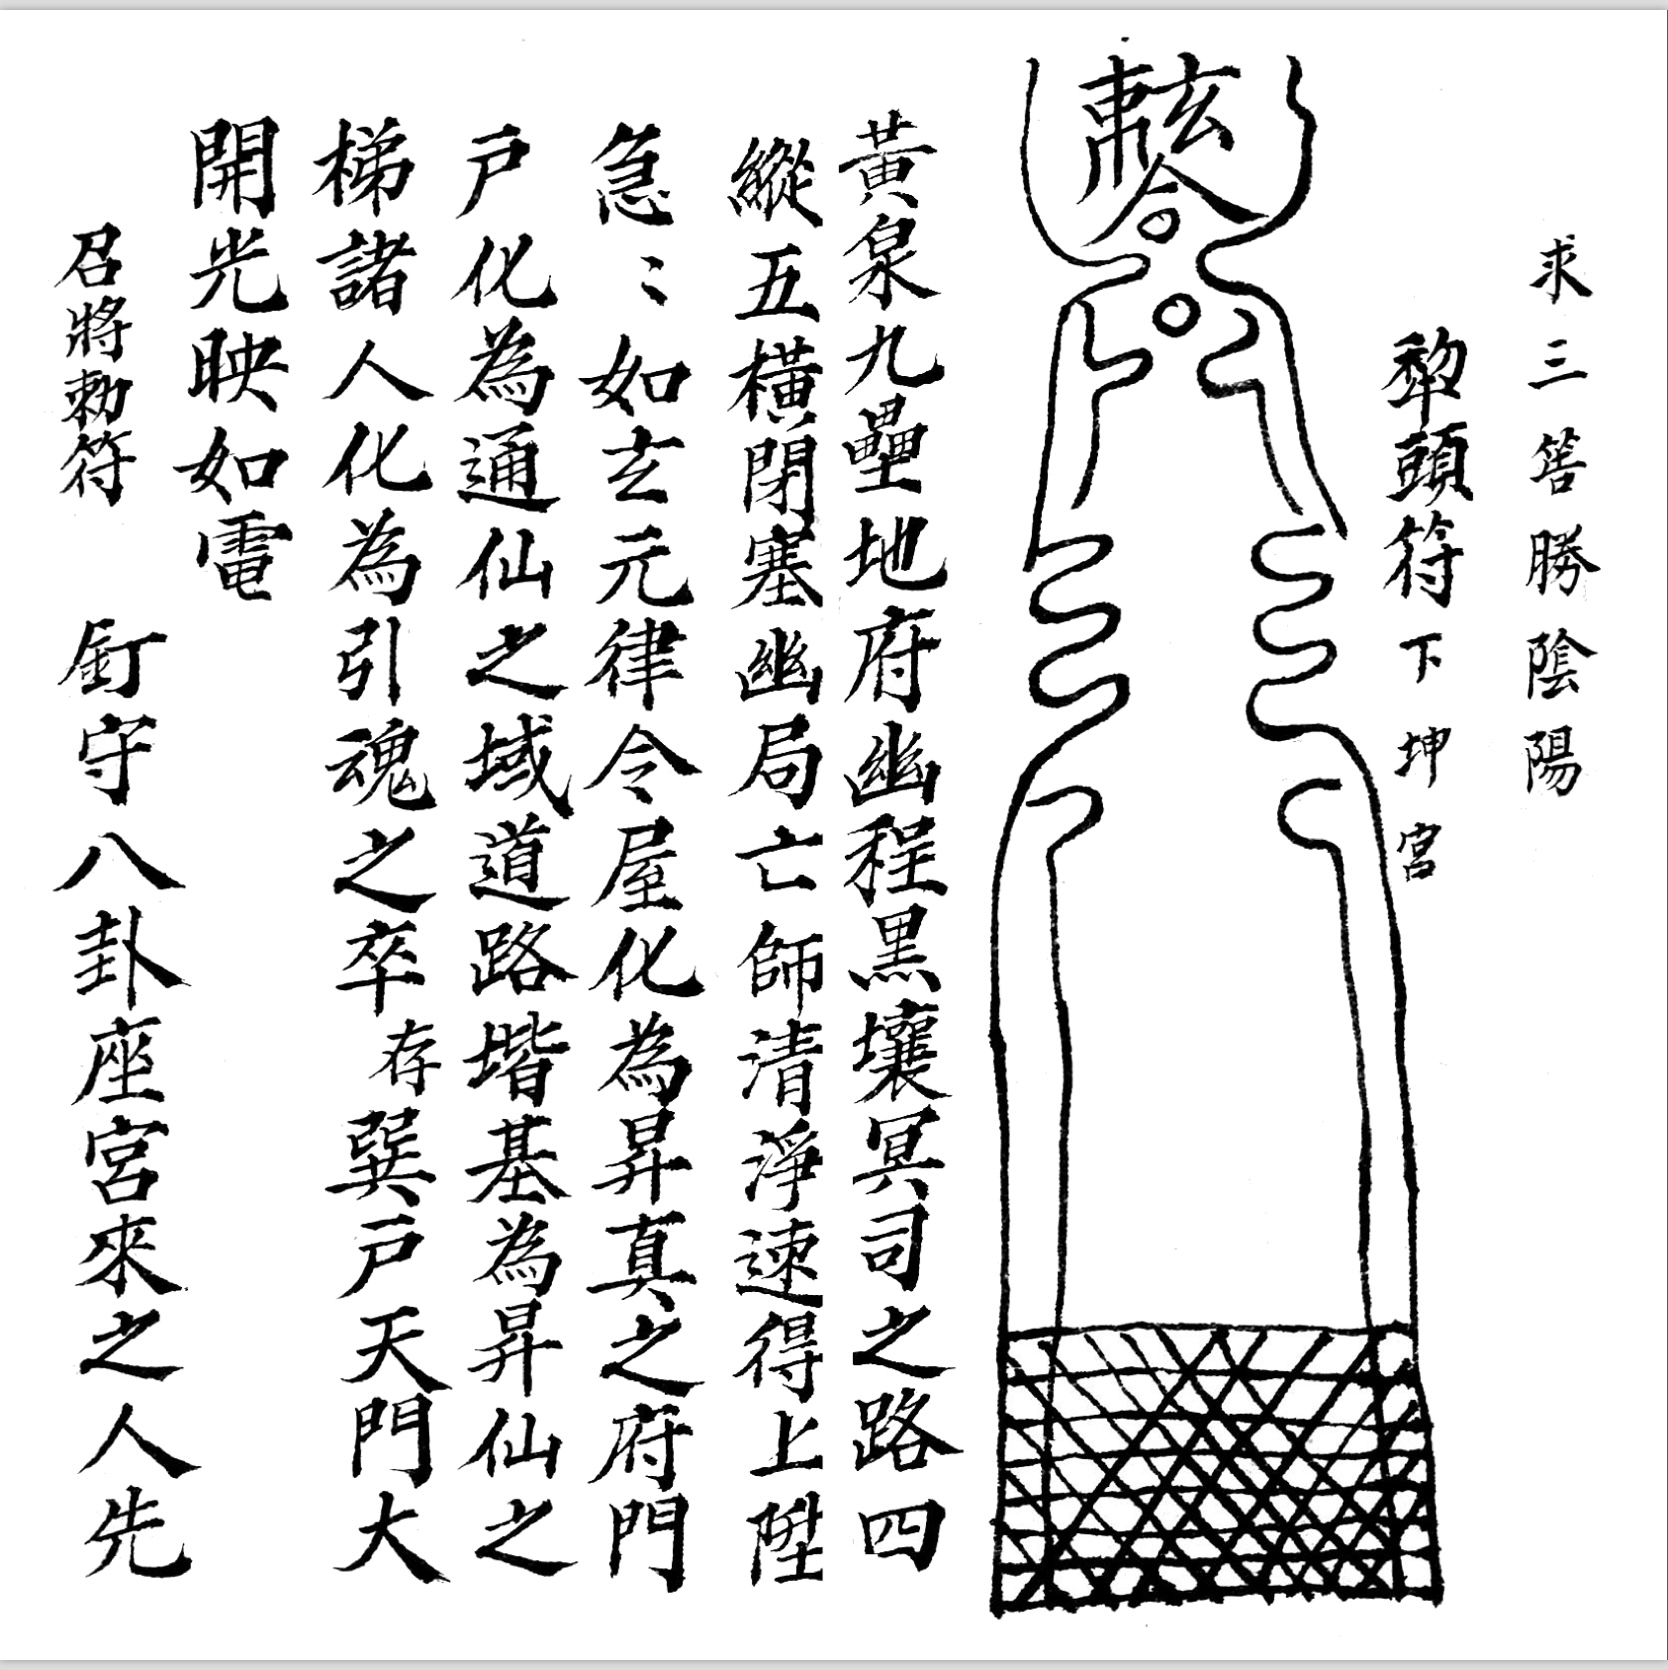 求三筶勝陰陽
犂頭符下坤宮
敕令
黃泉九壘地府幽程黑壤冥司之路四
縱五橫閉塞幽局亡師清淨速得上陞
急〻如玄元律令屋化為昇真之府門
戶化為通仙之域道路堦基為昇仙之
梯諸人化為引魂之卒存巽戶天門大
開光映如電
召將勅符 釘守八卦座宮來之人先